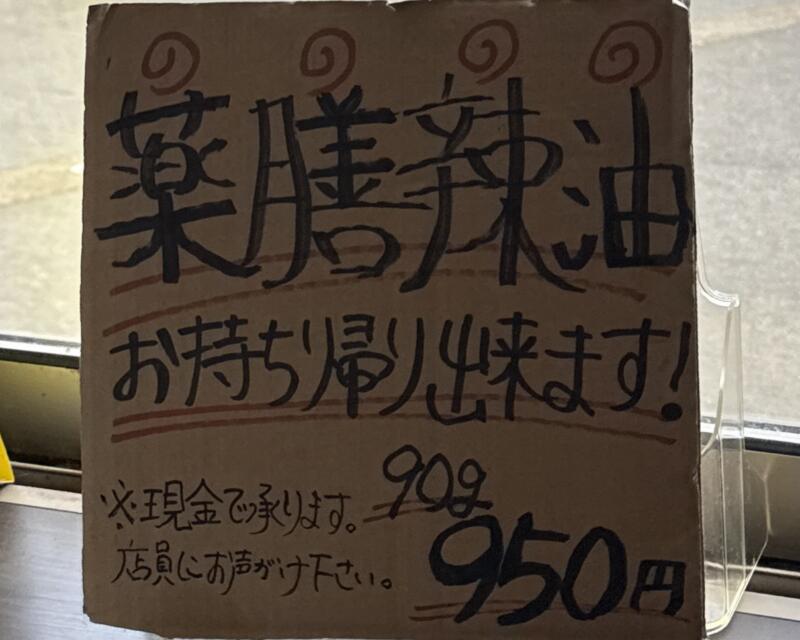 薬膳辣油
お持ち帰り出来ます!
90g
※現金で承ります。
950円
店員にお声がけ下さい。